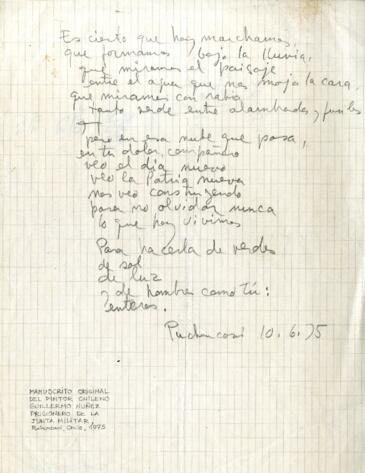 Es cierto que hoy marchamos,
que formamos bajo la lluvia,
que miramos el paisaje
entre el agua que nos moja la cara,
que miramos con rabia
tanto verde entre alambradas y fusiles
pero en esa nube que pasa,
en tu dolor, compañero
veo el día nuevo
veo la Patria nueva
nos veo construyendo
para no olvidar nunca
lo que hoy vivimos
Para hacerla de verdes
de sol
de luz
y de hombres como tú:
enteros.
Puchuncaví 10.6.75
MANUSCRITO ORIGINAL
DEL PINTOR CHILENO
GUILLERMO NUÑEZ
PRISIONERO DE LA
JUNTA MILITAR,
Chile, 1975